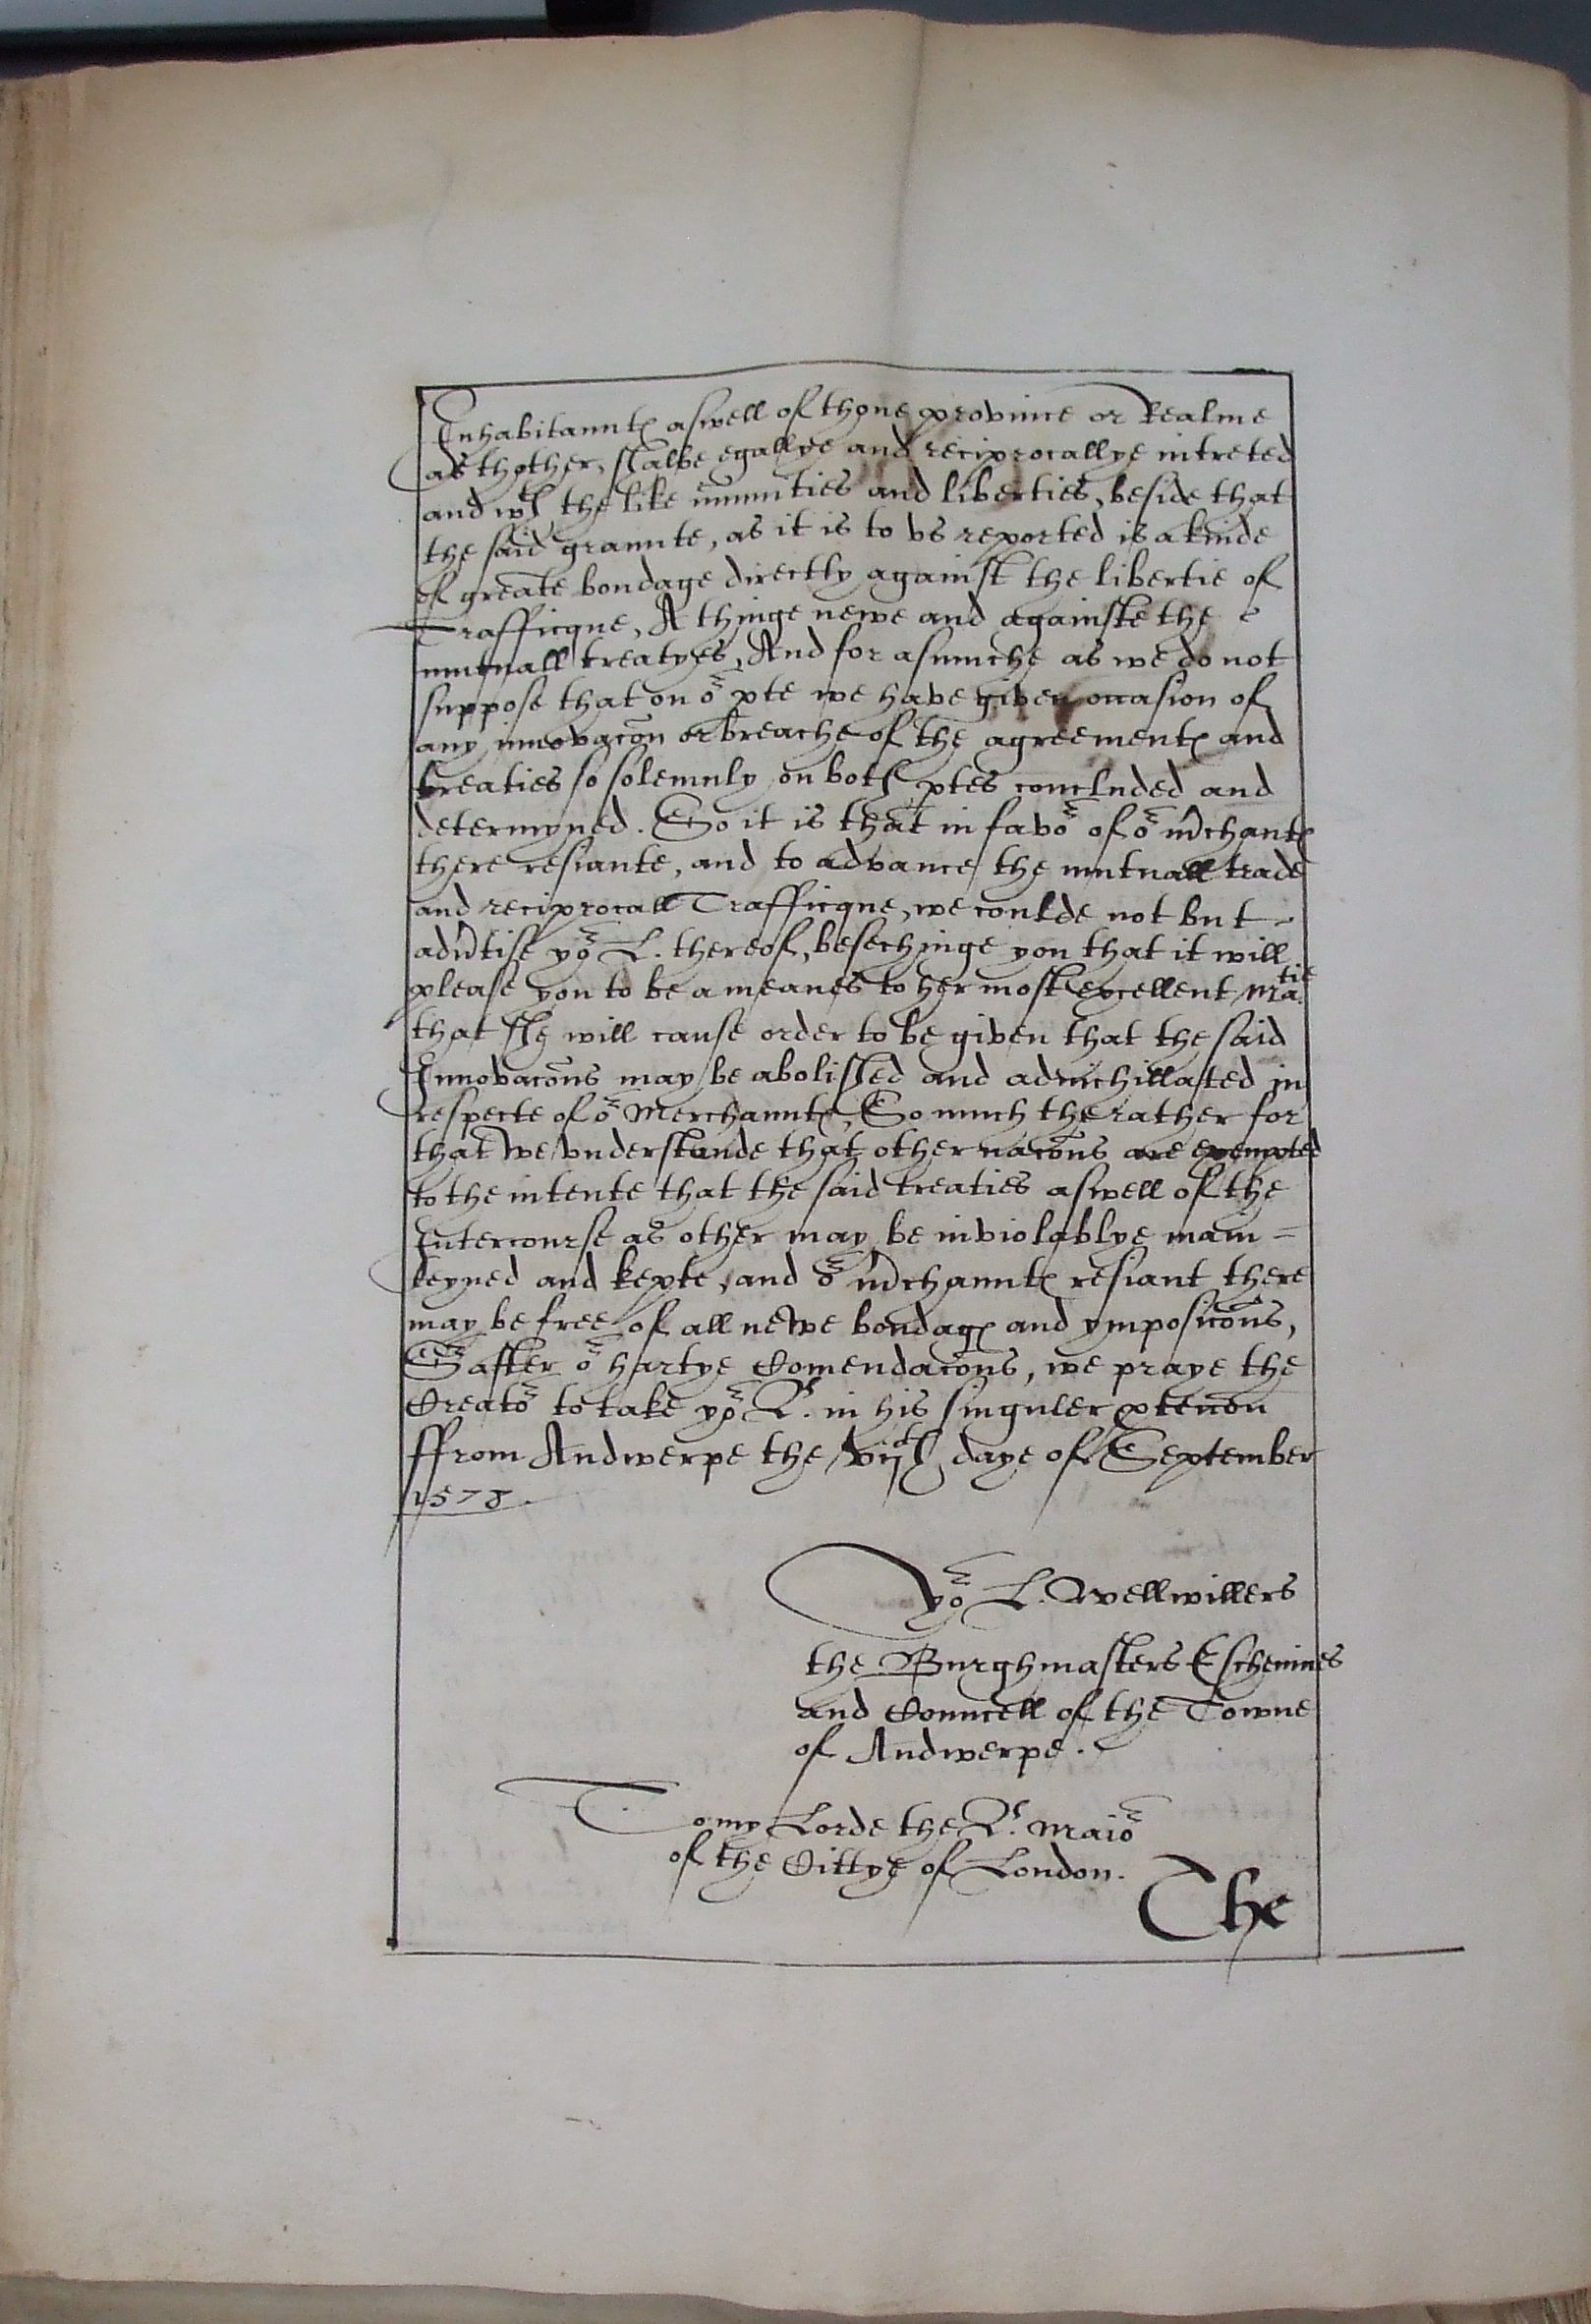 Inhabitauntꝭ aswell of thone province or Realme
as thother, shalbe egallye and reciprocallye intreted
and wth the like imunities and liberties, beside that
the said graunte, as it is to vs reported is a kinde
of greate bondage directly against the libertie of
Trafficque, A thinge newe and againste the
mutuall treatyes, And for asmuche as we do not
suppose that on or pte we have given occasion of
any innovacõn or breache of the agreementꝭ and
treaties so solemnly on both ptes concluded and
determyned. So it is that in favor of or m̃chantꝭ
there resiante, and to advance the mutuall trade
and reciprocall Trafficque, we coulde not but
adṽtise yor L. thereof, besechinge you that it will
please you to be a meanes to her most excellent Matie.
that she will cause order to be given that the said
Innovacõns may be abolished and adnichillated in
respecte of or Merchauntꝭ, So much the rather for
that we vnderstande that other nacõns are exempted
to the intente that the said treaties aswell of the
Intercourse as other may be inviolablye main=
teyned and kepte, and or m̃chauntꝭ resiant there
may be free of all newe bondagꝭ and ymposicõns,
Sr after or hartye Comendacõns, we praye the
Creator to take yor L. in his singuler ptecc̃on
ffrom Andwerpe the vijth daye of September
1578.
Yor L. wellwillers
the Burghmasters Eschevines
and Councell of the Towne
of Andwerpe.
To my Lorde the L. Maior
of the Cittye of London.
The